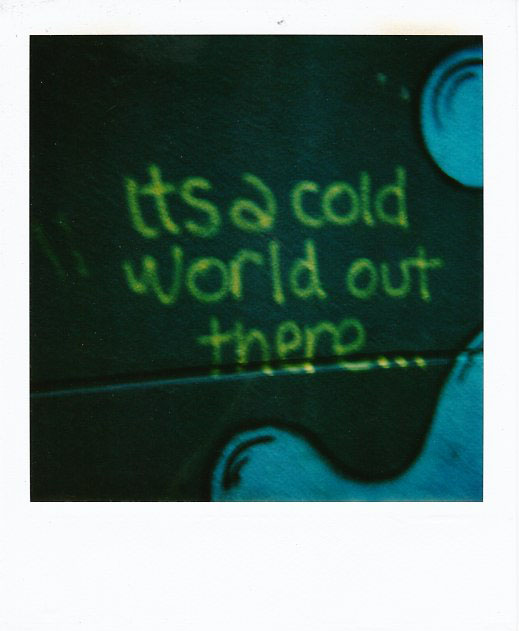 Its a cold
world out
there...